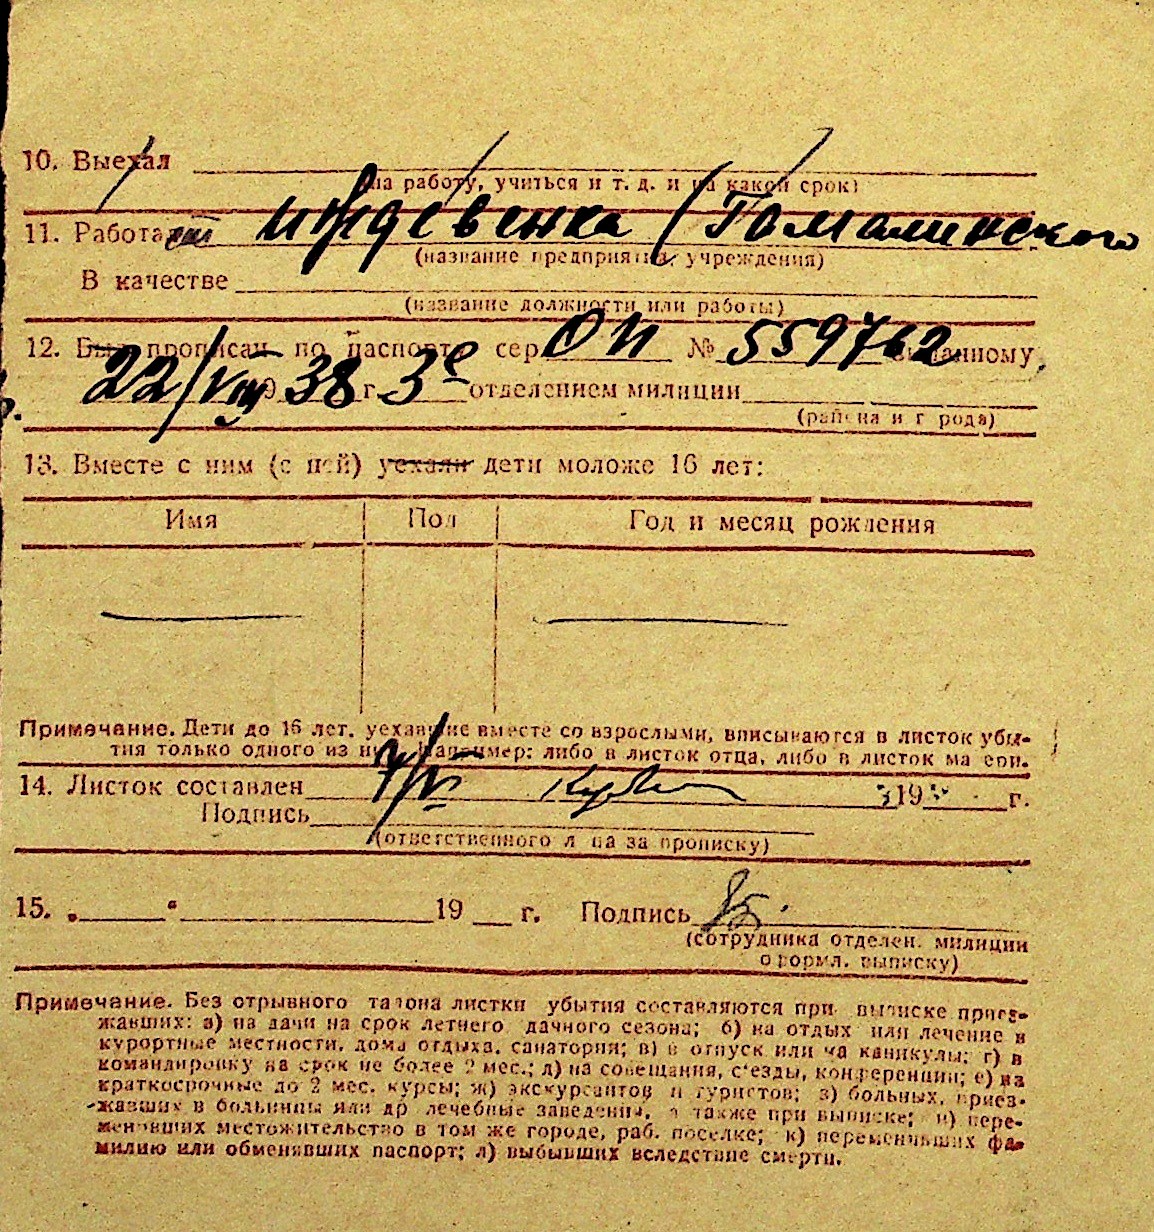 10. Выехал
(на работу, учиться и т. д. и на какой срок)
11. Работает иждевенка (Гомалинского
(название предприятия, учреждения)
В качестве
(название должности или работы)
12. Был прописан по паспорту сер. ОИ № 559762 выданному
22/VIII 1938 г. 3е отделением милиции
(района и города)
13. Вместе с ним (с ней) уехали дети моложе 16 лет:
Имя Пол Год и месяц рождения
Примечание. Дети до 16 лет, уехавшие вместе со взрослыми, вписываются в листок убы-
тия только одного из них. Например: либо в листок отца, либо в листок матери.
14. Листок составлен 7/VI 19 г.
Подпись
(ответственного лица за прописку)
15. „ “ 19 г. Подпись
(сотрудника отделен. милиции
оформл. выписку)
Примечание. Без отрывного талона листки убытия составляются при выписке приез-
жавших: а) на дачи на срок летнего дачного сезона; б) на отдых или лечение в
курортные местности, дома отдыха, санатории; в) в отпуск или на каникулы; г) в
командировку на срок не более 2 мес.; д) на совещания, с'езды, конференции; е) на
краткосрочные до 2 мес. курсы; ж) экскурсантов и туристов; з) больных, приез-
жавших в больницы или др лечебные заведения, а также при выписке; и) пере-
менивших местожительство в том же городе, раб. поселке; к) переменивших фа-
милию или обменявших паспорт; л) выбывших вследствие смерти.